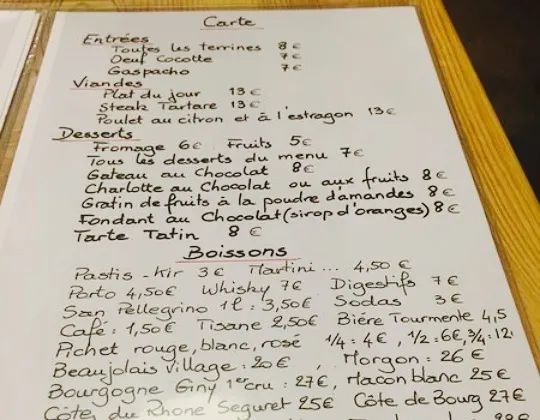 Carte
Entrées
Toutes les terrines 8 €
Oeuf Cocotte 7 €
Gaspacho 7 €
Viandes
Plat du jour 13 €
Steak Tartare 13 €
Poulet au citron et à l'estragon 13 €
Desserts
Fromage 6 € Fruits 5 €
Tous les desserts du menu 7 €
Gateau au Chocolat 8 €
Charlotte au Chocolat ou aux fruits 8 €
Gratin de fruits à la poudre d'amandes 8 €
Fondant au Chocolat (sirop d'oranges) 8 €
Tarte Tatin 8 €
Boissons
Pastis - Kir 3 € Martini ... 4,50 €
Porto 4,50 € Whisky 7 € Digestifs 7 €
San Pellegrino 1 l : 3,50 € Sodas 3 €
Café : 1,50 € Tisane 2,50 € Biére Tourmente 4,5
Pichet rouge, blanc, rosé 1/4 : 4 €, 1/2 : 6 €, 3/4 : 12
Beaujolais Village : 20 €, Morgon : 26 €
Bourgogne Giny 1er cru : 27 €, Macon blanc 25 €
Côtes du Rhone Seguret 25 € Côte de Bourg 27 €